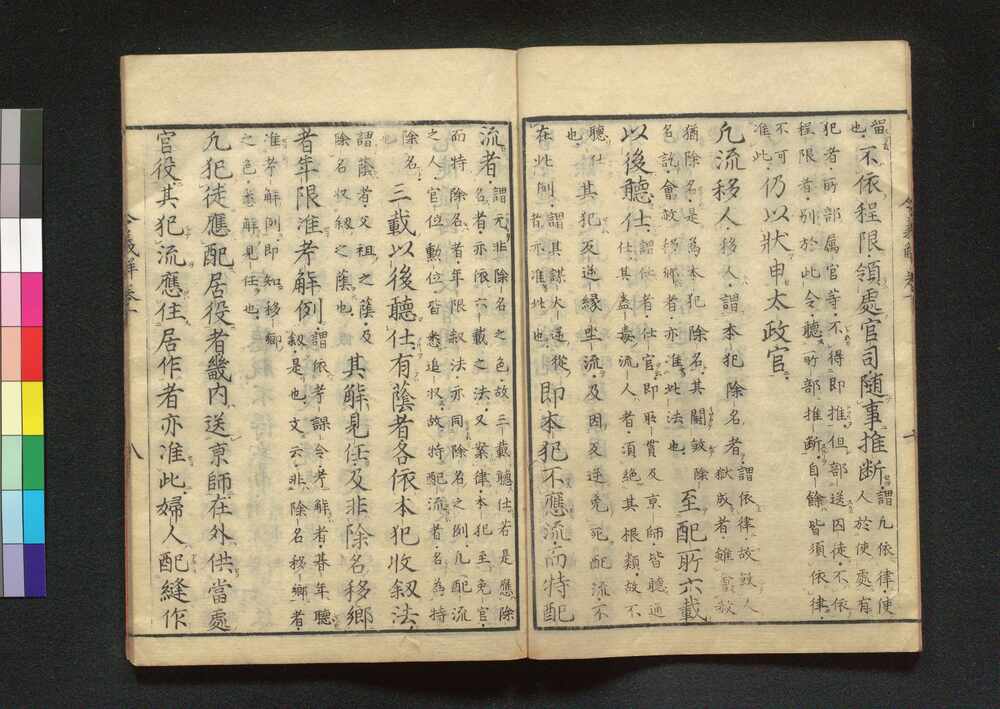 留
也
不依程限領處官司随事推断
謂凡依律使
人於使處有
犯者所部属官等不得即推但部送囚徒不依
程限者別於此令聽所部推断自餘皆須依律
不可
准此
仍以狀申太政官
凡流移人
移人謂本犯除名者
謂依律故敢人
獄成者雖會赦
猶除名是為本犯除名其闘敏除
名訖會赦移郷者亦准此法也
至配所六載
以後聽仕
謂仕者仕官即附貫及京師皆聽通
仕其蠱毒流人者須絶其根類故不
聽仕
也
其犯反逆縁坐流及因反逆免死配流不
在此例
謂其謀大逆從
者亦准此也
即本犯不應流而特配
流者
謂元非除名之色故三載聽仕若是應除
名者亦依六載之法又案律本犯至免官
而特除名者年限叙法亦同除名之例凡配流
之人官位勲位皆悉追収故特配流者名為特
除名
三載以後聽仕有蔭者各依本犯收叙法
謂蔭者父祖之蔭及
除名収叙之蔭也
其解見任及非除名移郷
者年限准考解例
謂依考課令考解者朞年聽
叙是也文云非除名移郷者
准考解例即知移郷
之色悉解見任也
凡犯徒應配居役者畿内送京師在外供當處
官役其犯流應住居作者亦准此婦人配縫作
八